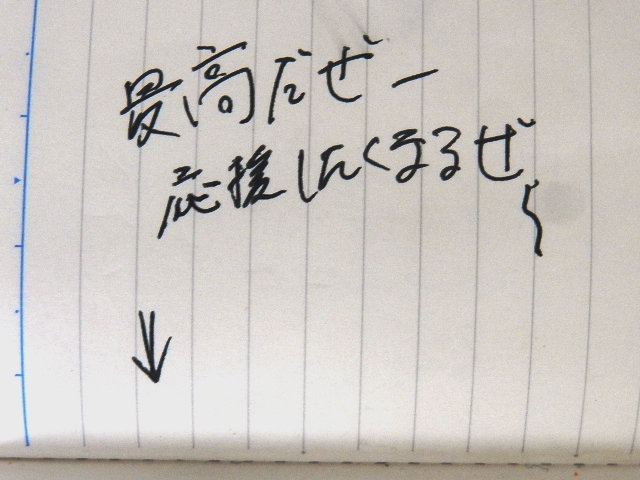 最高だぜー
応援したくなるぜ〜